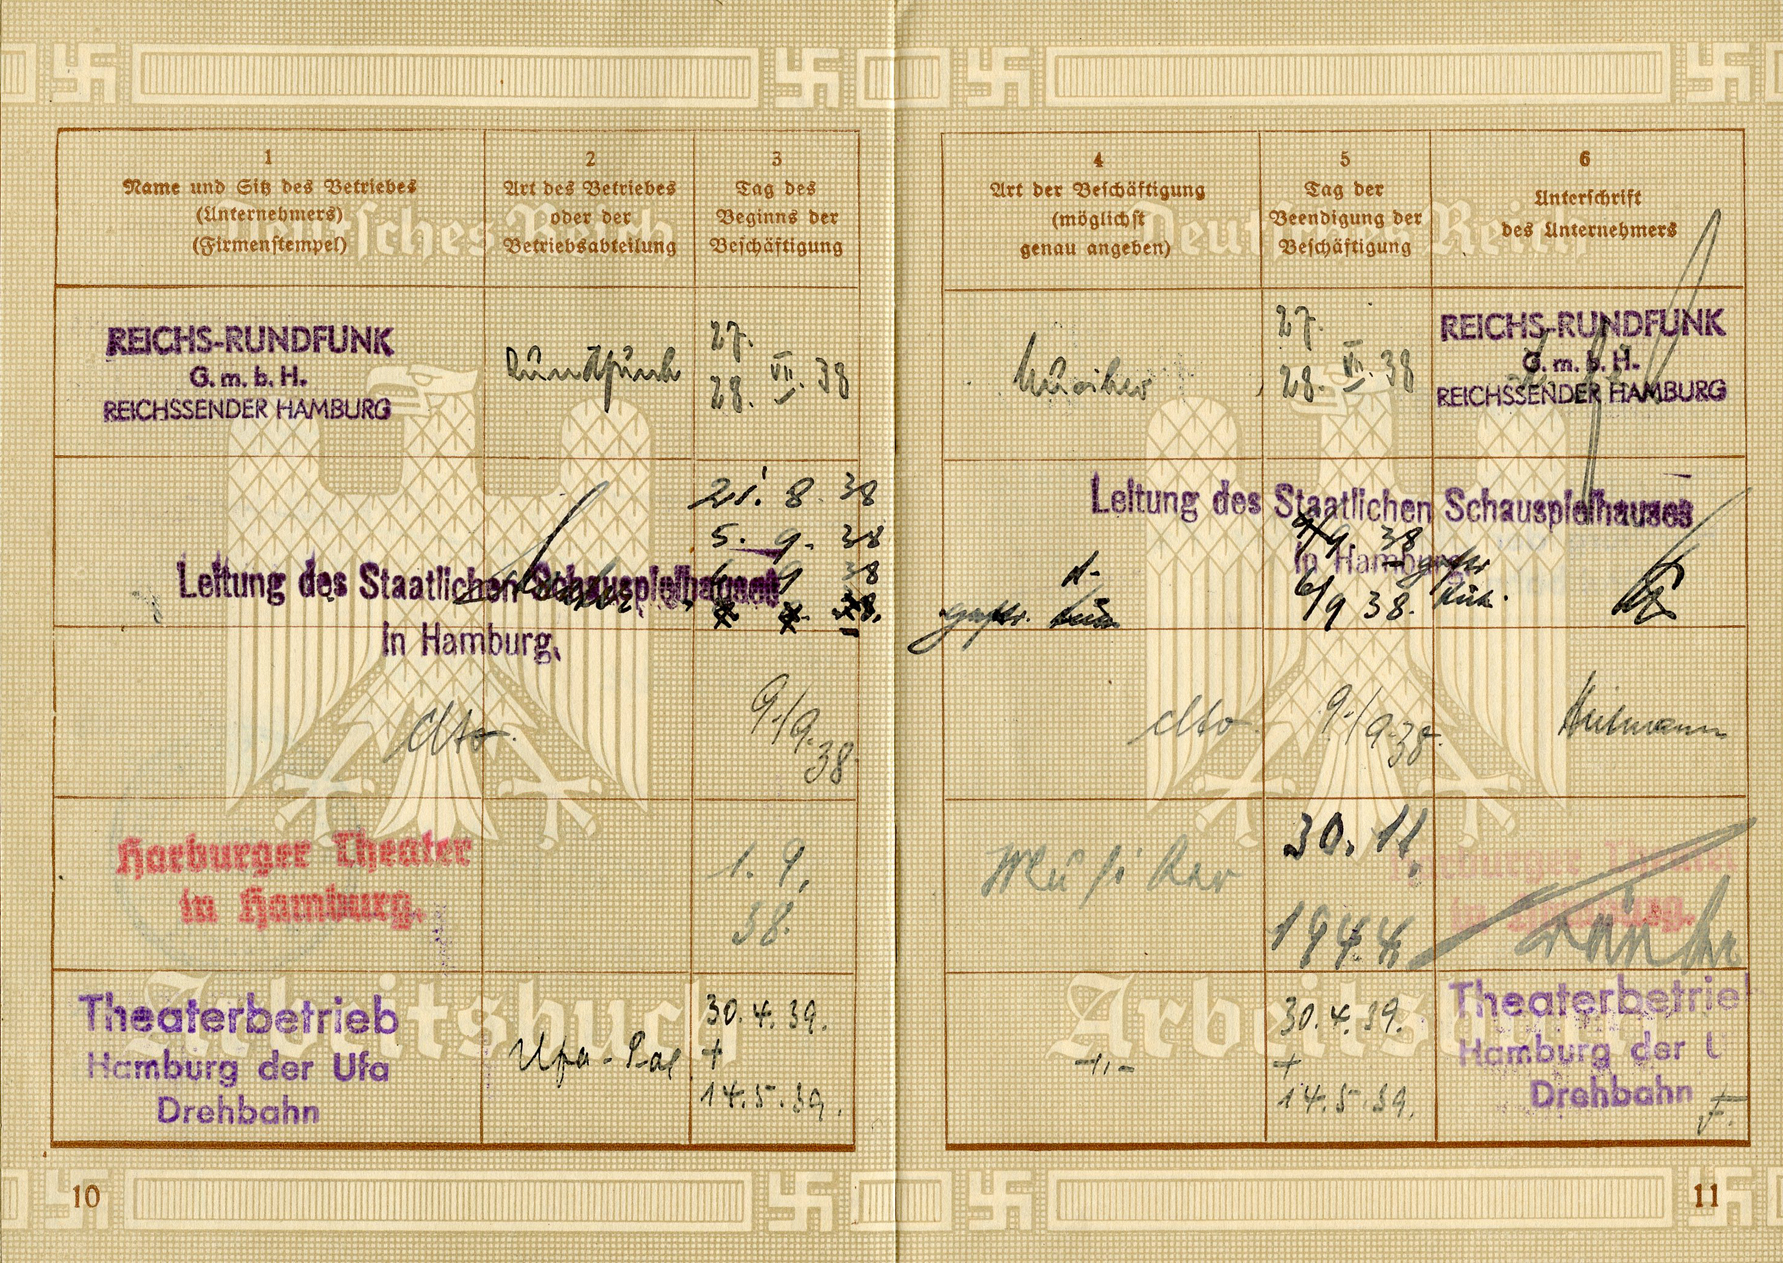 1
Name und Sitz des Betriebes
(Unternehmers)
(Firmenstempel)
2
Art des Betriebes
oder der
Betriebsabteilung
3
Tag des
Beginns der
Beschäftigung
4
Art der Beschäftigung
(möglichst
genau angeben)
5
Tag der
Beendigung der
Beschäftigung
6
Unterschrift
des Unternehmers
Deutsches Reich
Deutsches Reich
REICHS-RUNDFUNK
G. m. b. H.
REICHSSENDER HAMBURG
Rundfunk
27.
28. VII. 38
Musiker
27.
28. VII. 38
REICHS-RUNDFUNK
G. m. b. H.
REICHSSENDER HAMBURG
Leitung des Staatlichen Schauspielhauses
in Hamburg.
21. 8. 38
5. 9. 38
Leitung des Staatlichen Schauspielhauses
in Hamburg.
9. 38
6/9 38.
dto.
9./9.
38.
dto
9./9.38.
Harburger Theater
in Hamburg.
1. 9.
38.
Musiker
30. 11.
1944
Harburger Theater
in Hamburg.
Theaterbetrieb
Hamburg der Ufa
Drehbahn
Ufa-Pal
30. 4. 39.
+
14. 5. 39.
-"-
30. 4. 39.
+
14. 5. 39.
Theaterbetrie
Hamburg der U
Drehbahn
Arbeitsbuch
Arbeitsbuch
10
11